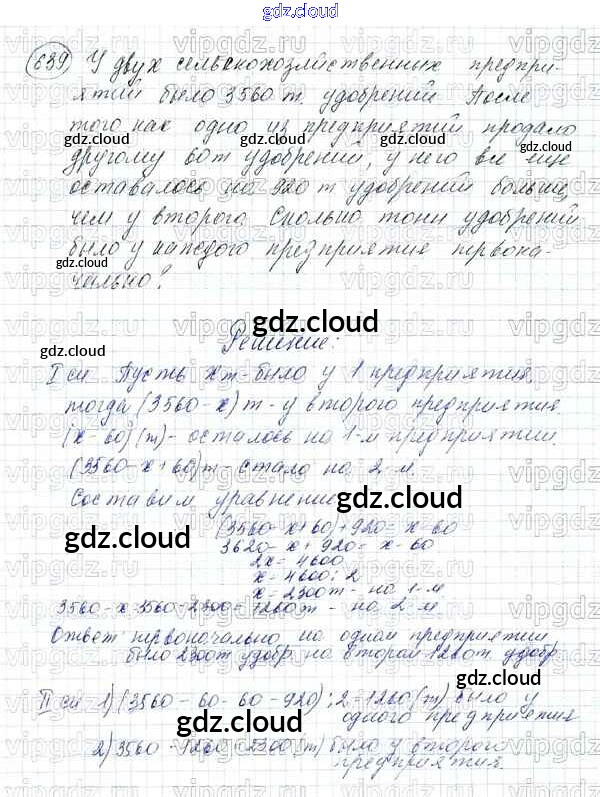 gdz.cloud
639) У двух сельскохозяйственных предпри-
ятий было 3560 т. удобрений. После
того как одно из предприятий продало
другому 60 т удобрений, у него все еще
оставалось на 920 т удобрений больше,
чем у второго. Сколько тонн удобрений
было у каждого предприятия первона-
чально?
Решение:
I сп Пусть x т - было у 1 предприятия,
тогда (3560 - x) т - у второго предприятия
(x - 60) (т) - осталось на 1-м предприятии.
(3560 - x + 60) т - стало на 2-м.
Составим уравнение
(3560 - x + 60) + 920 = x - 60
3620 - x + 920 = x - 60
2x = 4600
x = 4600 : 2
x = 2300 т - на 1-м
3560 - x = 3560 - 2300 = 1260 т - на 2-м
Ответ первоначально на одном предприятии
было 2300 т удобр. на втором 1260 т. удобр.
II сп 1) (3560 - 60 - 60 - 920) : 2 = 1260 (т) было у
одного предприятия
2) 3560 - 1260 = 2300 (т) было у второго
предприятия.